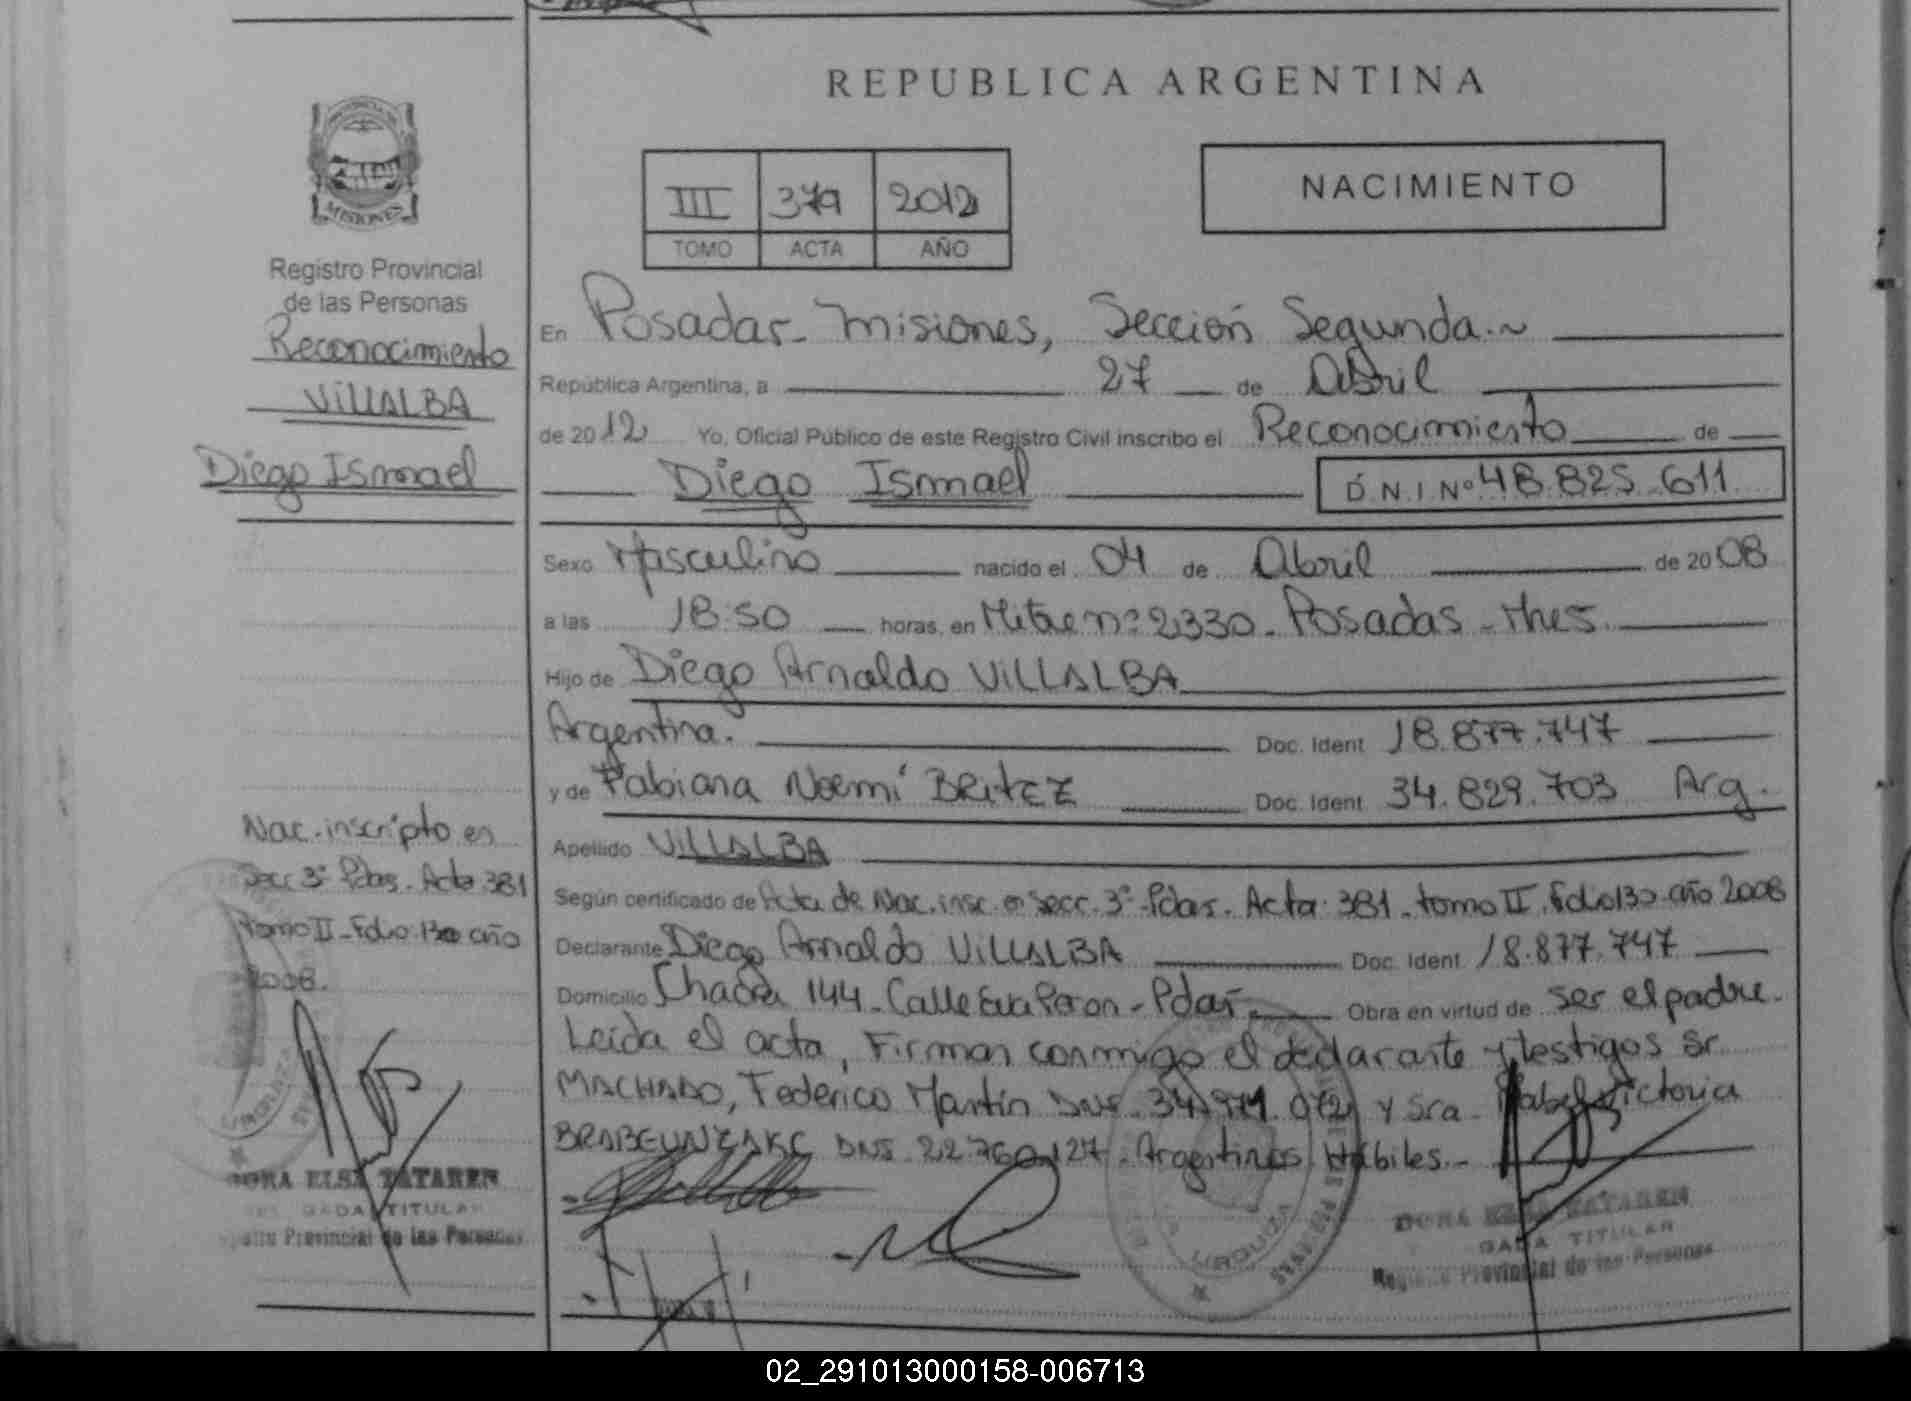 REPUBLICA ARGENTINA
PROVINCIA DE
MISIONES
III 379 2012
TOMO ACTA AÑO
NACIMIENTO
Registro Provincial
de las Personas
Reconocimiento
VILLALBA
Diego Ismael
En Posadas - Misiones, Sección Segunda.~
República Argentina, a 27 de Abril
de 2012 Yo, Oficial Público de este Registro Civil inscribo el Reconocimiento de
Diego Ismael D.N.I Nº 48.825.611
Sexo Masculino nacido el 04 de Abril de 2008
a las 18:50 horas, en Mitre nº 2330 - Posadas - Mnes.
Hijo de Diego Arnaldo VILLALBA
Argentina. Doc. Ident 18.877.747
y de Fabiana Noemí BRITEZ Doc. Ident 34.829.703 Arg.
Apellido VILLALBA
Según certificado de Acta de Nac. insc. en Secc. 3º Pdas. Acta 381 - tomo II. Folio 130 año 2008
Declarante Diego Arnaldo VILLALBA Doc. Ident 18.877.747
Domicilio Chacra 144 - Calle Eva Peron - Pdas. Obra en virtud de ser el padre.
Leída el acta, Firman conmigo el declarante y testigos Sr
MACHADO, Federico Martín DNI. y Sra. Mabel Victoria
DNI. 22.760.127 - Argentinos Hábiles.-
Nac. inscripto en
Secc 3º Pdas. Acta 381
Tomo II - Folio 130 año
2008.
DORA ELSA TATAREN
TITULAR
Provincial de las Personas
URQUIZA
DORA ELSA TATAREN
TITULAR
Registro Provincial de las Personas
URQUIZA
02_291013000158-006713